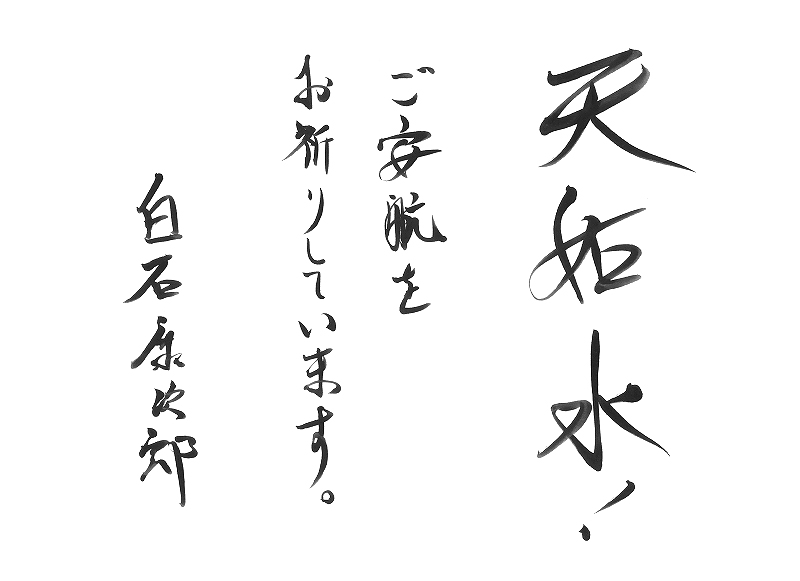 天如水!
ご安航を
お祈りしています。
白石康次郎